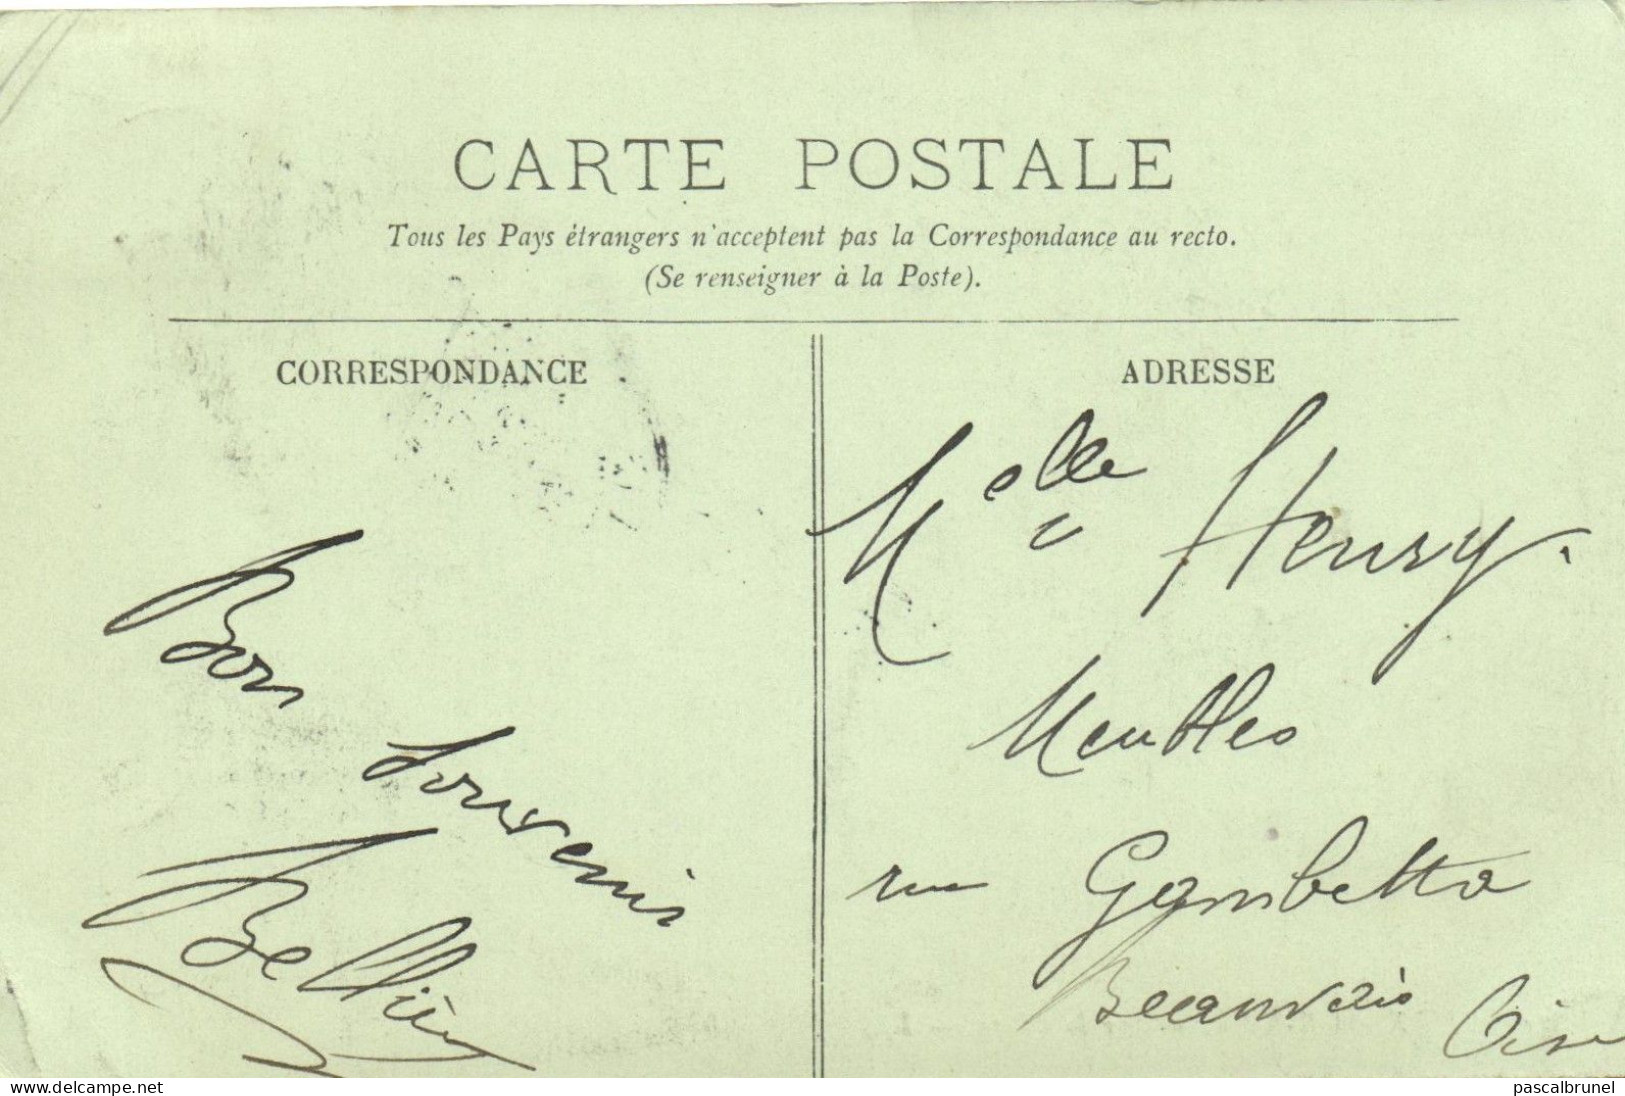 CARTE POSTALE
Tous les Pays étrangers n'acceptent pas la Correspondance au recto.
(Se renseigner à la Poste).
CORRESPONDANCE
Bon
souvenir
ADRESSE
Melle Henry.
Meubles
rue Gambetta
Beauvais Oise
www.delcampe.net
pascalbrunel